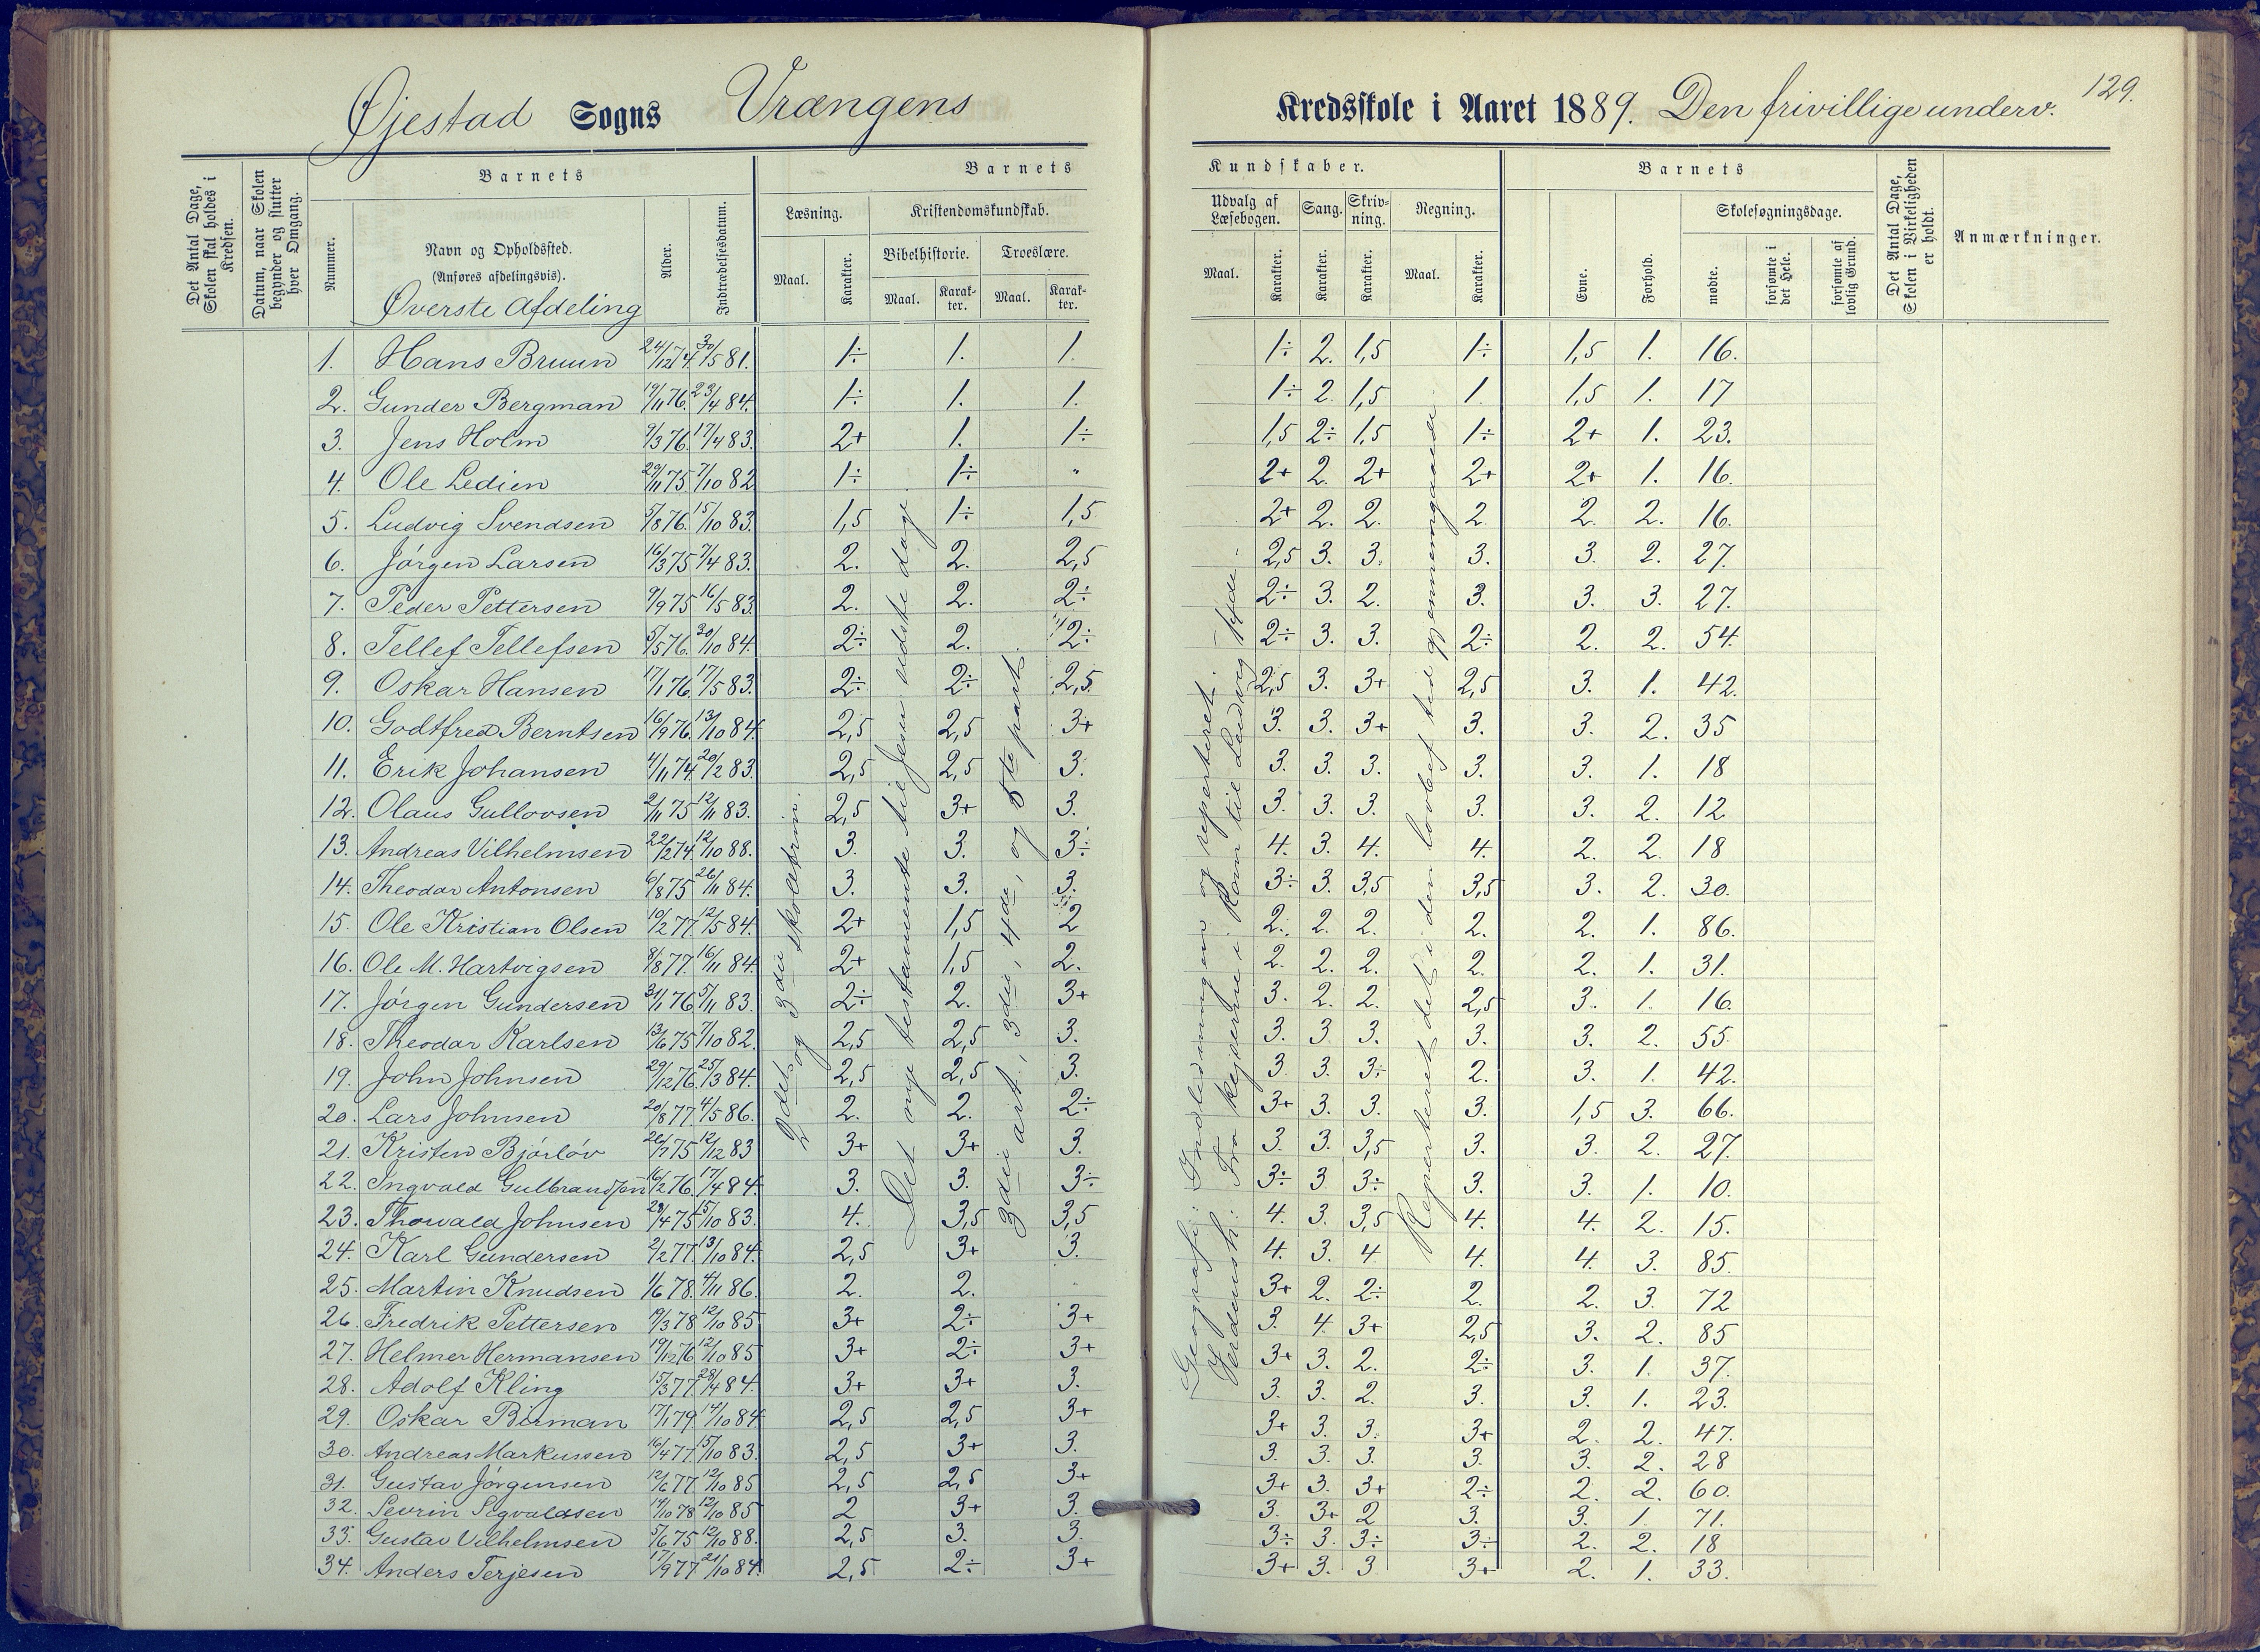 Øjestad Sogns Vrængens Kredsskole i Aaret 1889. Den frivillige underv. 129.
Det Antal Dage, Skolen skal holdes i Kredsen.
Datum, naar Skolen begynder og slutter hver Omgang.
Barnets
Nummer.
Navn og Opholdssted.
(Anføres afdelingsvis).
Øverste Afdeling
Alder.
Indtrædelsesdatum.
Barnets Kundskaber.
Læsning.
Maal. Karakter.
Kristendomskundskab.
Bibelhistorie. Troeslære.
Maal. Karakter. Maal. Karakter.
Udvalg af Læsebogen. Sang. Skrivning. Regning.
Maal. Karakter. Karakter. Karakter. Maal. Karakter.
Barnets
Evne. Forhold.
Skolesøgningsdage.
mødte. forsømte i det Hele. forsømte af lovlig Grund.
Det Antal Dage, Skolen i Virkeligheden er holdt.
Anmærkninger.
1. Hans Bruun 24/12 74. 30/5 81. 1÷ 1. 1. 1÷ 2. 1,5 1÷ 1,5 1. 16.
2. Gunder Bergman 19/11 76. 23/4 84. 1÷ 1. 1. 1÷ 2. 1,5 1. 1,5 1. 17
3. Jens Holm 9/3 76. 17/4 83. 2+ 1. 1÷ 1,5 2÷ 1,5 1÷ 2+ 1. 23.
4. Ole Ledien 29/11 75. 7/10 82 1÷ 1÷ " 2+ 2. 2+ 2+ 2+ 1. 16.
5. Ludvig Svendsen 5/8 76. 15/10 83. 1,5 1÷ 1,5 2+ 2. 2. 2. 2. 2. 16.
6. Jørgen Larsen 16/3 75 7/4 83. 2. 2. 2,5 2,5 3. 3. 3. 3. 2. 27.
7. Peder Pettersen 9/9 75 16/5 83. 2. 2. 2÷ 2÷ 3. 2. 3. 3. 3. 27.
8. Tellef Tellefsen 5/5 76. 30/10 84. 2÷ 2. 2÷ 2÷ 3. 3. 2÷ 2. 2. 54.
9. Oskar Hansen 17/1 76. 17/5 83. 2÷ 2÷ 2,5 2,5 3. 3+ 2,5 3. 1. 42.
10. Godtfred Berntsen 16/9 76. 13/10 84. 2,5 2,5 3+ 3. 3. 3+ 3. 3. 2. 35
11. Erik Johansen 4/11 74. 20/2 83. 2,5 2,5 3. 3. 3. 3. 3. 3. 1. 18
12. Olaus Gullovsen 2/11 75 12/11 83. 2,5 3+ 3. 3. 3. 3. 3. 3. 2. 12
13. Andreas Vilhelmsen 22/2 74. 12/10 88. 3. 3. 3÷ 4. 3. 4. 4. 2. 2. 18
14. Theodor Antonsen 6/8 75 26/11 84. 3. 3. 3. 3÷ 3. 3,5 3,5 3. 2. 30.
15. Ole Kristian Olsen 10/2 77. 12/5 84. 2+ 1,5 2 2. 2. 2. 2. 2. 1. 86.
16. Ole M. Hartvigsen 8/8 77. 16/11 84. 2+ 1,5 2. 2. 2. 2. 2. 2. 1. 31.
17. Jørgen Gundersen 31/1 76. 5/11 83. 2÷ 2. 3+ 3. 2. 2. 2,5 3. 1. 16.
18. Theodor Karlsen 13/6 75 7/10 82. 2,5 2,5 3. 3. 3. 3. 3. 3. 2. 55.
19. John Johnsen 29/12 76. 25/3 84. 2,5 2,5 3. 3. 3. 3÷ 2. 3. 1. 42.
20. Lars Johnsen 20/8 77. 4/5 86. 2. 2. 2÷ 3+ 3. 3. 3. 1,5 3. 66.
21. Kristen Bjørløv 26/7 75 12/12 83 3+ 3+ 3. 3. 3. 3,5 3. 3. 2. 27.
22. Ingvald Gulbrandsen 16/2 76. 17/4 84. 3. 3. 3÷ 3÷ 3 3÷ 3. 3. 1. 10.
23. Thorvald Johnsen 29/4 75 15/10 83. 4. 3,5 3,5 4. 3. 3,5 4. 4. 2. 15.
24. Karl Gundersen 2/2 77. 13/10 84. 2,5 3+ 3. 4. 3. 4 4. 4. 3. 85.
25. Martin Knudsen 1/6 78. 4/11 86. 2. 2. 3+ 2. 2÷ 2. 2. 3. 72
26. Fredrik Pettersen 19/3 78 12/10 85 3+ 2÷ 3+ 3. 4. 3+ 2,5 3. 2. 85
27. Helmer Hermansen 19/12 76 12/10 85 3+ 2÷ 3+ 3+ 3. 2. 2÷ 3. 1. 37.
28. Adolf Kling 15/3 77 28/4 84. 3+ 3+ 3. 3. 3. 2. 3. 3. 1. 23.
29. Oskar Birman 17/1 79 14/10 84 2,5 2,5 3+ 3+ 3. 3. 3+ 2. 2. 47.
30. Andreas Markussen 16/4 77. 15/10 83. 2,5 3+ 3. 3. 3. 3. 3. 3. 2. 28
31. Gustav Jørgensen 12/6 77 12/10 85 2,5 2,5 3+ 3+ 3. 3+ 2÷ 2. 2. 60.
32. Sevrin Sigvaldsen 14/10 78 12/10 85 2 3+ 3. 3. 3+ 2 3. 3. 1. 71.
33. Gustav Vilhelmsen 5/6 75 12/10 88. 2,5 3. 3. 3÷ 3. 3÷ 3÷ 2. 2. 18
34. Anders Terjesen 17/9 77. 21/10 84. 2,5 2÷ 3+ 3+ 3. 3 3+ 2. 1. 33.
2det og 3die skoletrin.
Det nye testamente til Jesu sidste dage.
3die art., 3die, 4de, og 5te part.
Geografi: Indledningen og repeteret.
Verdensh: Fra kejserne i Rom til Ludvig 14de.
Repeteret det i den lovbef. tid gjennemgaaede.